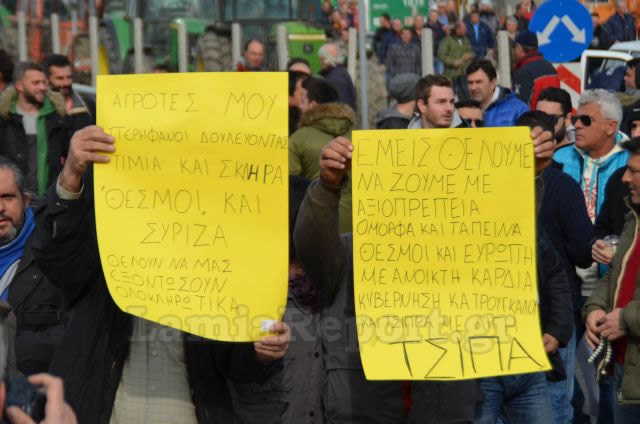 ΑΓΡΟΤΕΣ ΜΟΥ
ΠΕΡΗΦΑΝΟΙ ΔΟΥΛΕΥΟΝΤΑΣ
ΤΙΜΙΑ ΚΑΙ ΣΚΛΗΡΑ
ΘΕΣΜΟΙ, ΚΑΙ
ΣΥΡΙΖΑ
ΘΕΛΟΥΝ ΝΑ ΜΑΣ
ΕΞΟΝΤΩΣΟΥΝ
ΟΛΟΚΛΗΡΩΤΙΚΑ
ΕΜΕΙΣ ΘΕΛΟΥΜΕ
ΝΑ ΖΟΥΜΕ ΜΕ
ΑΞΙΟΠΡΕΠΕΙΑ
ΟΜΟΡΦΑ ΚΑΙ ΤΑΠΕΙΝΑ
ΘΕΣΜΟΙ ΚΑΙ ΕΥΡΩΠΗ
ΜΕ ΑΝΟΙΚΤΗ ΚΑΡΔΙΑ
ΚΥΒΕΡΝΗΣΗ ΚΑΤΡΟΥΓΚΑΛΟΥ
ΚΑΙ ΤΣΙΠΡΑ ΜΕ
ΤΣΙΠΑ
LamiaReport.gr